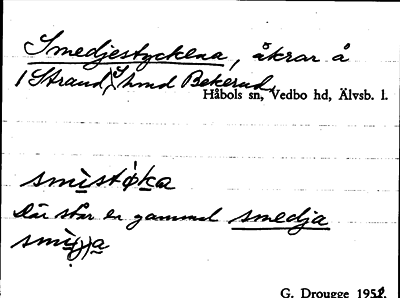 Smedjestyckena, åkrar å
1 Strand, hmd Bekerud,
Håbols sn, Vedbo hd, Älvsb. l.
smìstøka
Där står en gammal smedja
G. Drougge 1952.